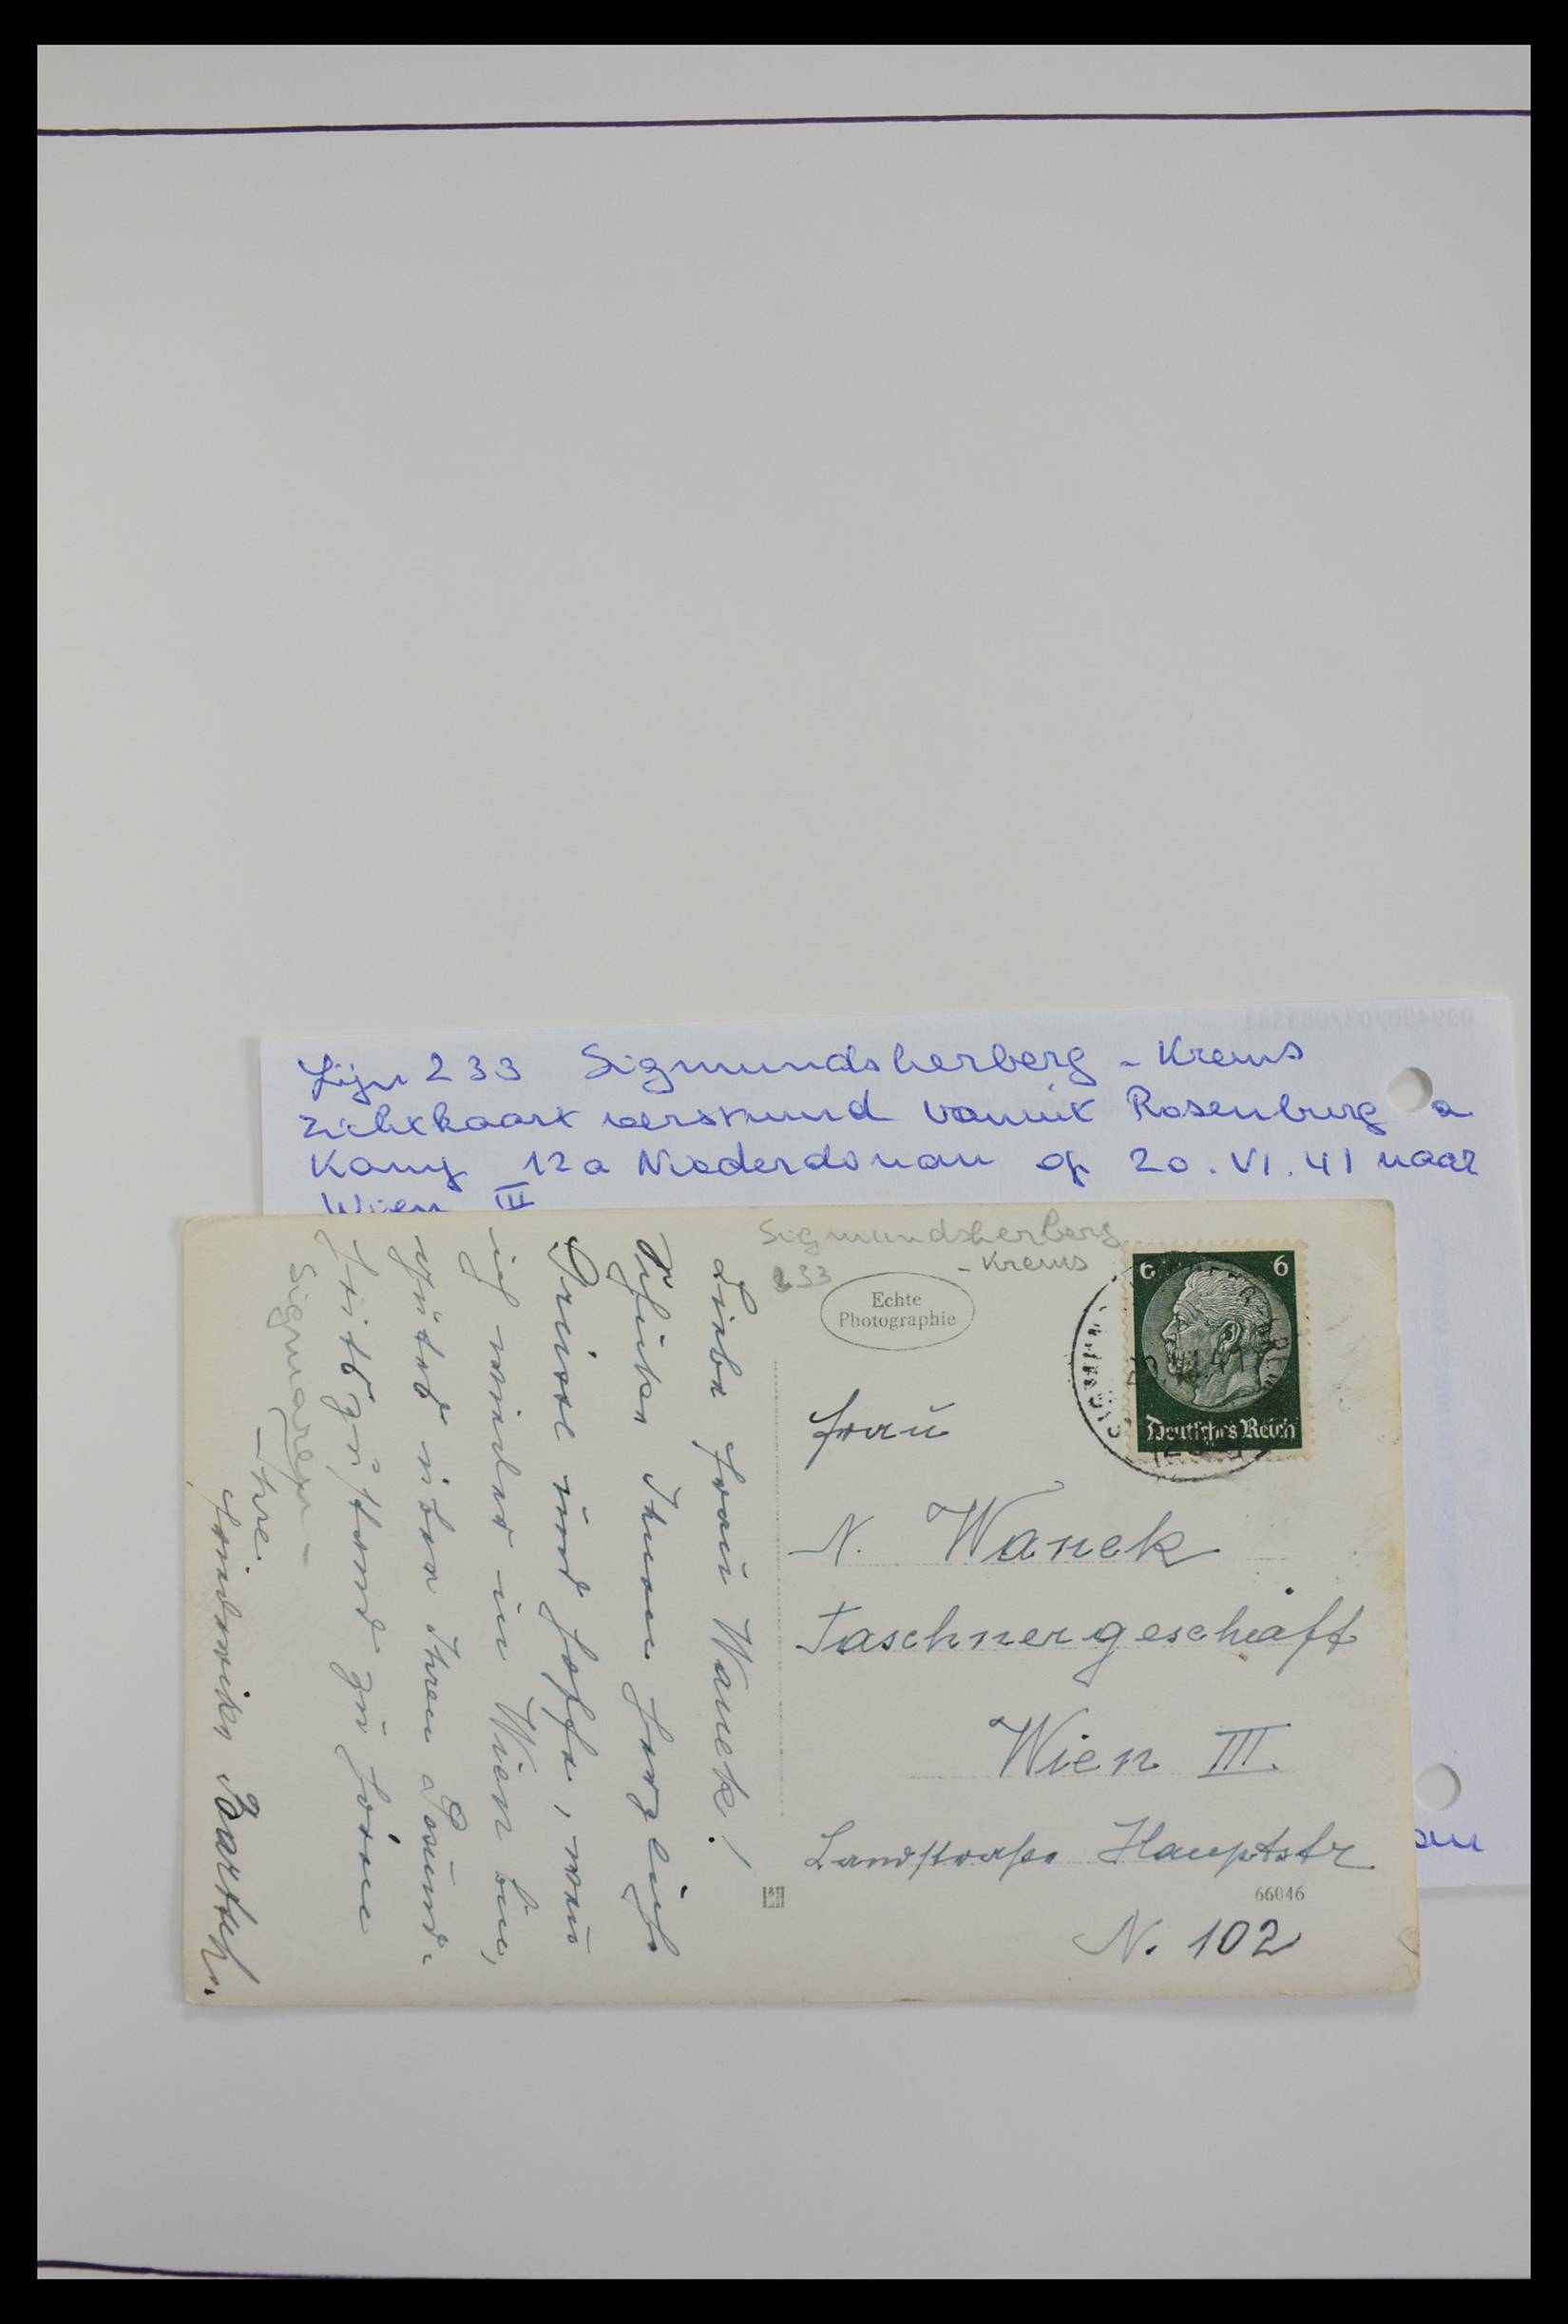 Lijn 233 Sigmundsherberg - Krems
zichtkaart verstuurd vanuit Rosenburg a
Kamp 12a Niederdonau op 20.VI.41 naar
Wien III
Sigmundsherberg
- Krems
233
Echte
Photographie
6 6
Deutsches Reich
Frau
N. Wanek
Taschnergeschäft
Wien III.
Landstraße Hauptstr
66046
N. 102
Liebe Frau Wanek!
Schicke Ihnen herzliche
Grüsse und hoffe, wenn
ich wieder in Wien bin,
gutes über Ihren Gesund-
heitszustand zu hören
Ihre
Bartsch.